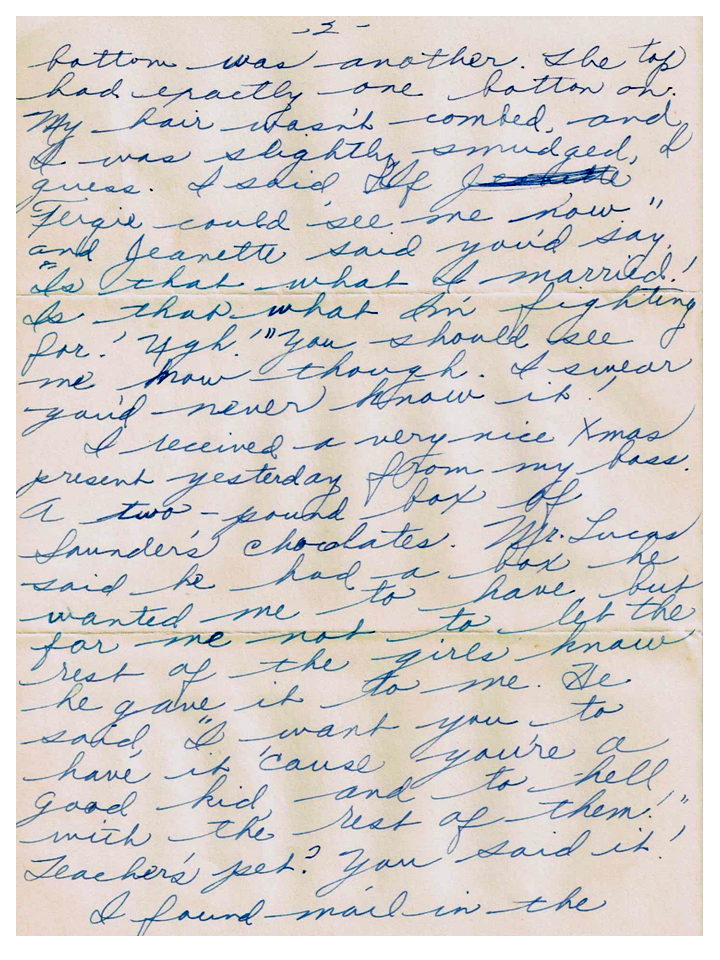 -2-
bottom was another. The top
had exactly one button on.
My hair wasn't combed, and
I was slightly smudged, I
guess. I said "If
Fergie could see me now"
and Jeanette said you'd say,
"Is that what I married!
Is that what I'm fighting
for! Ugh!" You should see
me now though. I swear
you'd never know it!
I received a very nice Xmas
present yesterday from my boss.
A two-pound box of
Saunder's chocolates. Mr. Lucas
said he had a box he
wanted me to have but
for me not to let the
rest of the girls know
he gave it to me. He
said, "I want you to
have it 'cause you're a
good kid, and to hell
with the rest of them!"
Teacher's pet? You said it!
I found mail in the